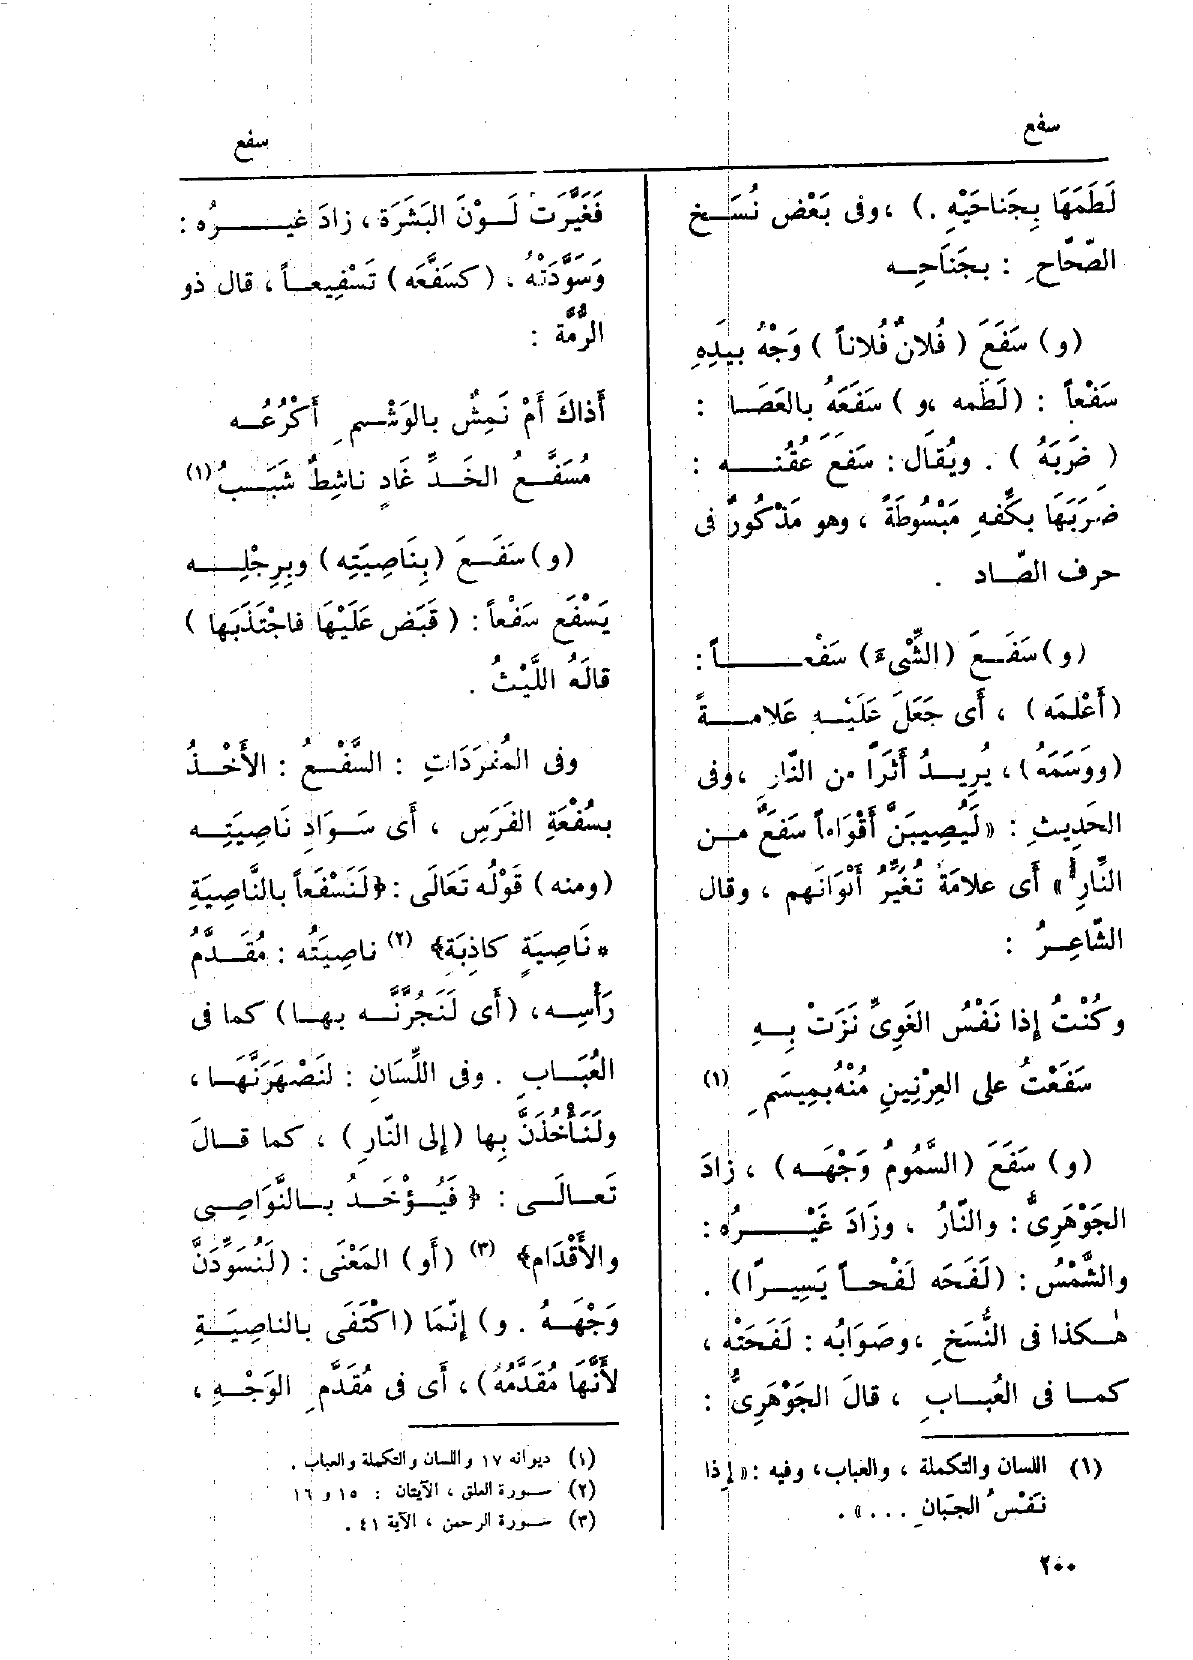 سفع
سفع
لَطَمَهَا بِجَناحَيْهِ .) ، وفى بَعْض نُسَـخ
الصّحَاحِ : بجَنَاحِـه
(و) سَفَعَ ( فُلانٌ فُلاناً ) وَجْهُ بيَدِهِ
سَفْعاً : (لَطَمه ،و ) سَفَعَهُ بالعَصَـا :
( ضَرَبَهُ ) . ويُقَال : سَفَعَ عُقُنَـه :
ضَرَبَهَا بكَفِّهِ مَبْسُوطَةً ، وهو مَذْكُورٌ فى
حرف الصّـاد .
(و) سَفَـعَ (الشَّىءَ) سَفْعـــاً :
(أَعْلَمَه) ، أَى جَعَلَ عَلَيْـهِ عَلامـةً
(ووَسَمَهُ) ، يُرِيـدُ أَثَراً من النّارِ ،وفى
الحَدِيثِ : «لَيُصِيبَنَّ أَقْوَاماً سَفْعٌ مـن
النّارِ» أَى علامَةٌ تُغَيِّرُ أَلْوَانَهم ، وقال
الشّاعِـرُ :
وكُنْتُ إِذا نَفْسُ الغَوِىِّ نَزَتْ بِـهِ
سَفَعْتُ على العِرْنِينِ مُنْهُ بمِيسَمِ (١)
(و) سَفَعَ (السَّمُومُ وَجْهَـه) ، زادَ
الجَوْهَرِىُّ : والنّارُ ، وزَادَ غَيْـــرُه :
والشَّمْسُ : (لَفَحَه لَفْحـاً يَسِيـرًا) .
هٰـكذا فى النُّسَخِ ،وصَوَابُه : لَفَحَتْه ،
كمـا فى العُبـابِ ، قالَ الجَوْهَرِىُّ :
(١) اللسان والتكملة ، والعباب، وفيه : «إذا
نَفْسُ الجَبانِ ... » .
فَغَيَّرَت لَـوْنَ البَشَرَة ، زادَ غيـــرُه :
وَسَوَّدَتْهُ ، (كسَفَّعَه) تَسْفِيعـاً ، قال ذو
الرُّمَّة :
أَذاكَ أَمْ نَمِشٌ بالوَشْـمِ أَكْرُعُـه
مُسَفَّـعُ الخَـدِّ غَادٍ ناشِطٌ شَبَـبُ (١)
(و)سَفَـعَ (بِنَاصِيَتِه) وبِرِجْلِــه
يَسْفَع سَفْعاً : ( قَبَضَ عَلَيْهَا فاجْتَذَبَها )
قالَهُ اللَّيْثُ .
وفى المُفْرَدَاتِ : السَّفْـعُ : الأَخْـذُ
بسُفْعَةِ الفَرَسِ ، أَى سَـوَادِ نَاصِيَتِـه
(ومنه) قَوْلُه تَعَالَى : ﴿لَنَسْفَعاً بالنَّاصِيَةِ
* نَاصِيَةٍ كاذِبَةٍ﴾ (٢) ناصِيَتُه : مُقَـدَّمُ
رَأْسِـه ، (أَى لَنَجُرَّنَّـه بهـا) كما فى
العُبَـابِ . وفى اللِّسَانِ : لنَصْهَرَنَّهَـا ،
ولَنَأْخُذَنَّ بِها (إلى النّارِ) ، كما قـالَ
تَعـالَـى : ﴿ فَيُـؤْخَـذُ بـالنَّوَاصِـى
والأَقْدَامِ﴾ (٣) (أَو) المَعْنَى : (لَنُسَوِّدَنَّ
وَجْهَـهُ . و) إِنَّمَا (اكْتَفَى بالناصِيَـةِ
لأَنَّهَا مُقَدَّمُهُ) ، أَى فى مُقَدَّمِ الوَجْـهِ ،
(١) ديوانه ١٧ واللسان والتكملة والعباب .
(٢) سـورة العلق ، الآيتان : ١٥ و ١٦
(٣) سـورة الرحمن ، الآية ٤١ .
٢٠٠